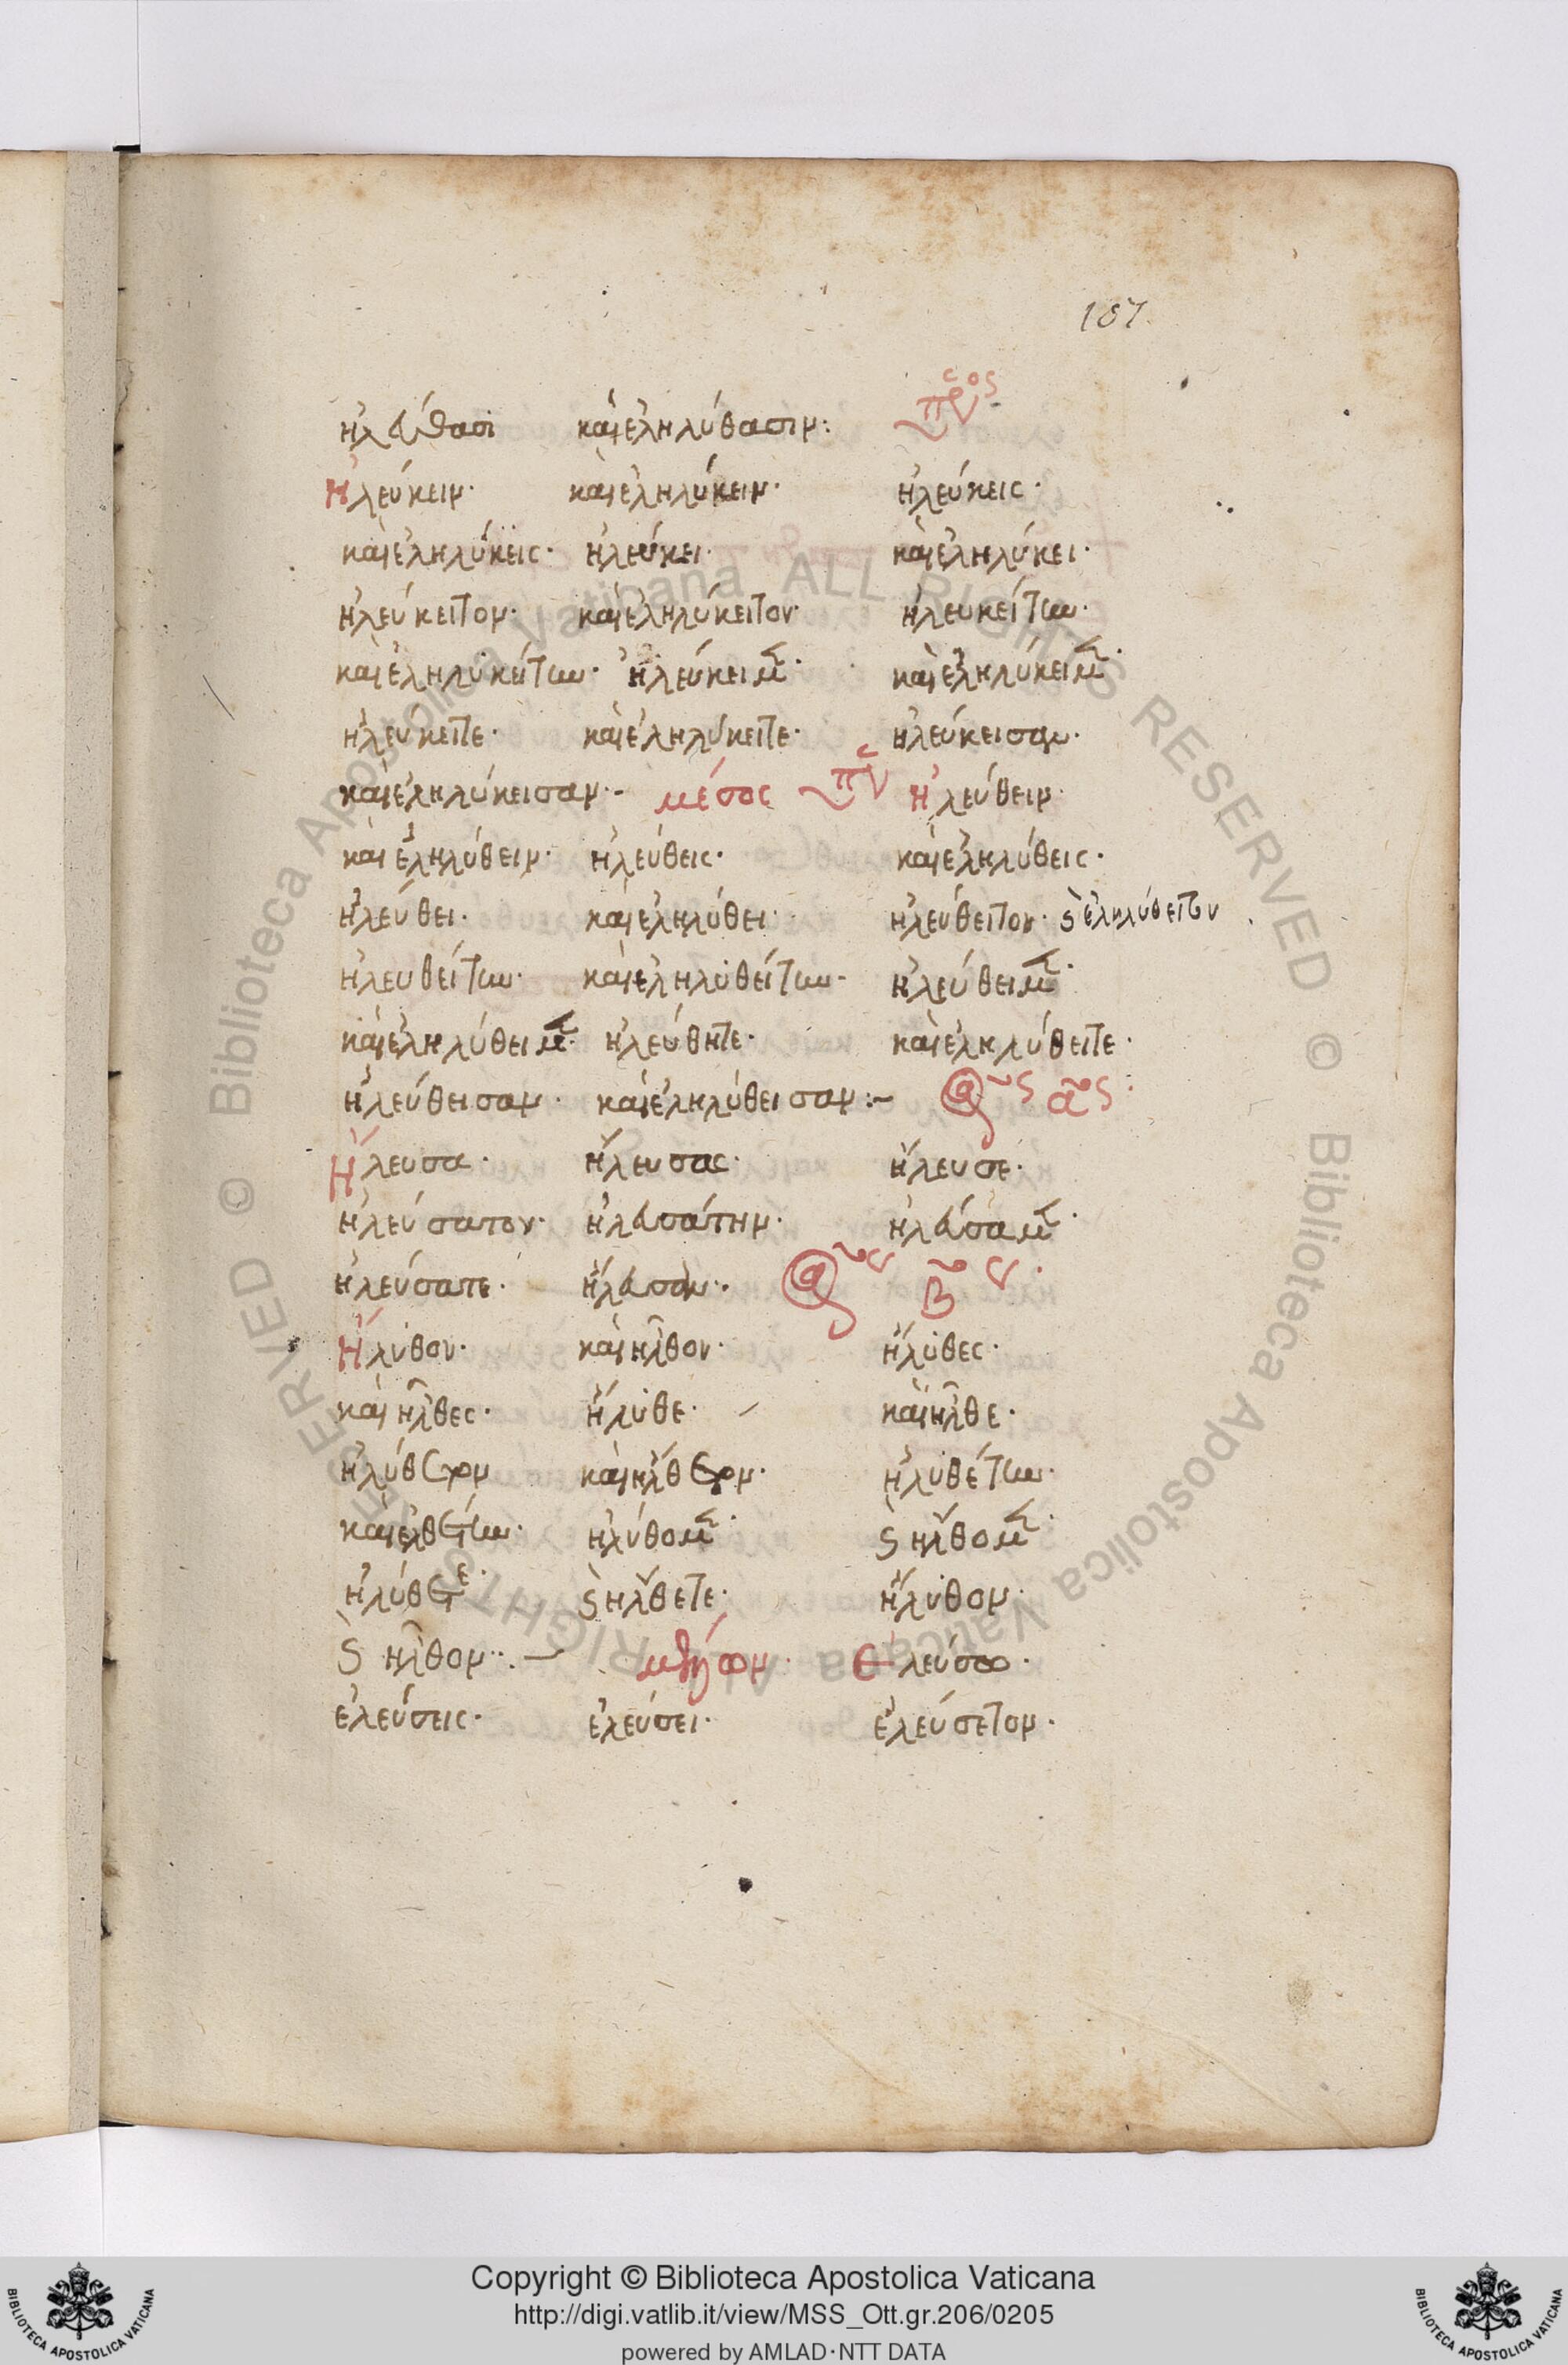 187
ἠλεύθασι καὶ ἐληλύθασιν: ὑπερσ̅ος
Ἠλεύκειν· καὶ ἐληλύκειν· ἠλεύκεις·
καὶ ἐληλύκεις· ἠλεύκει· καὶ ἐληλύκει·
ἠλεύκειτον· καὶ ἐληλύκειτον· ἠλευκείτην·
καὶ ἐληλυκείτην· ἠλεύκειμ̅· καὶ ἐληλύκειμ̅·
ἠλεύκειτε· καὶ ἐληλύκειτε· ἠλεύκεισαν·
καὶ ἐληλύκεισαν·- μέσος Ἠλεύθειν·
καὶ ἐληλύθειν· ἠλεύθεις· καὶ ἐληλύθεις·
ἠλεύθει· καὶ ἐληλύθει· ἠλεύθειτον· ϛ ἐληλύθειτον
ἠλευθείτην· καὶ ἐληλυθείτην· ἠλεύθειμ̅·
καὶ ἐληλύθειμ̅· ἠλεύθητε· καὶ ἐληλύθειτε·
ἠλεύθεισαν· καὶ ἐληλύθεισαν:- ἀόρς α̅ς:
Ἤλευσα· ἤλευσας· ἤλευσε·
ἠλεύσατον· ἠλευσάτην· ἠλεύσαμ̅·
ἠλεύσατε· ἤλευσαν·. ἀόρς β̅ς·
Ἤλυθον· καὶ ἦλθον· ἤλυθες·
καὶ ἦλθες· ἤλυθε· καὶ ἦλθε·
ἠλύθετον καὶ ἤλθετον· ἠλυθέτην·
καὶ ἐλθέτην· ἠλύθομ̅· ϛ ἤλθομ̅·
ἠλύθετε· ϛ ἤλθετε· ἤλυθον·
ϛ ἦλθον·.- μέλλων· Ἐλεύσω·
ἐλεύσεις· ἐλεύσει· ἐλεύσετον·
© Biblioteca Apostolica Vaticana ALL RIGHTS RESERVED © Biblioteca Apostolica Vaticana ALL RIGHTS RESERVED
Copyright © Biblioteca Apostolica Vaticana
http://digi.vatlib.it/view/MSS_Ott.gr.206/0205
powered by AMLAD·NTT DATA
BIBLIOTECA APOSTOLICA VATICANA
BIBLIOTECA APOSTOLICA VATICANA